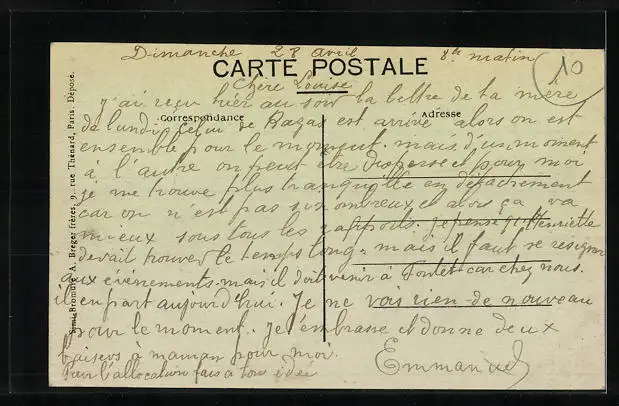 Dimanche 28 avril 8h matin
CARTE POSTALE
10
Chère Louise
J'ai reçu hier au soir la lettre de ta mère
Correspondance
Adresse
de lundi. Celui de Bazas est arrivé alors on est
ensemble pour le moment. mais d'un moment
à l'autre on peut être dispersé et pour moi
je me trouve plus tranquille en détachement
car on n'est pas si nombreux et alors ça va
mieux sous tous les rapports. je pense qu'Henriette
devait trouver le temps long. mais il faut se resigner
aux événements. mais il doit venir à car chez nous.
il en part aujourd'hui. Je ne vois rien de nouveau
pour le moment. Je t'embrasse et donne deux
baisers à maman pour moi.
Emmanuel
Pour l'allocation fais à ton idée
Bromure A. Breger frères, 9, rue Thénard, Paris. Déposé.